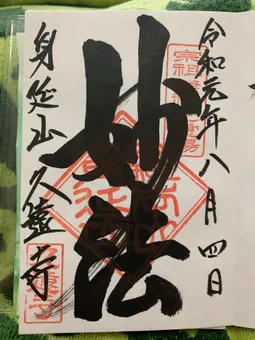 令和元年八月四日
妙法
身延山久遠寺